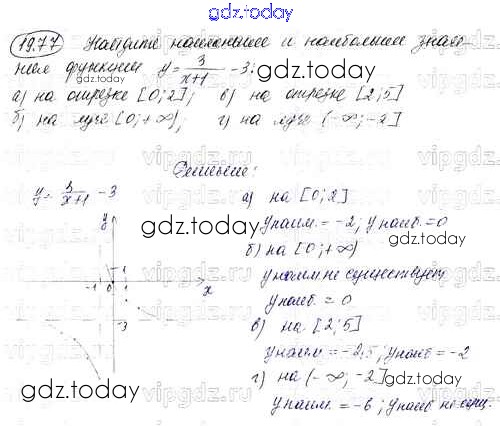 gdz.today
19.77 Найдите наименьшее и наибольшее значе-
ния функции y = 3/(x+1) - 3:
gdz.today
а) на отрезке [0; 2]; в) на отрезке [2; 5]
б) на луче [0; +∞); г) на луче (-∞; -2]
Решение:
y = 3/(x+1) - 3
а) на [0; 2]
y наим. = -2; y наиб. = 0
б) на [0; +∞)
y наим не существует
y наиб. = 0
в) на [2; 5]
y наим = -2,5; y наиб = -2
г) на (-∞; -2]
y наим. = -6; y наиб не сущ.
y
1
-1 0 1 x
-3
gdz.today
gdz.today
gdz.today
gdz.today
vipgdz.ru